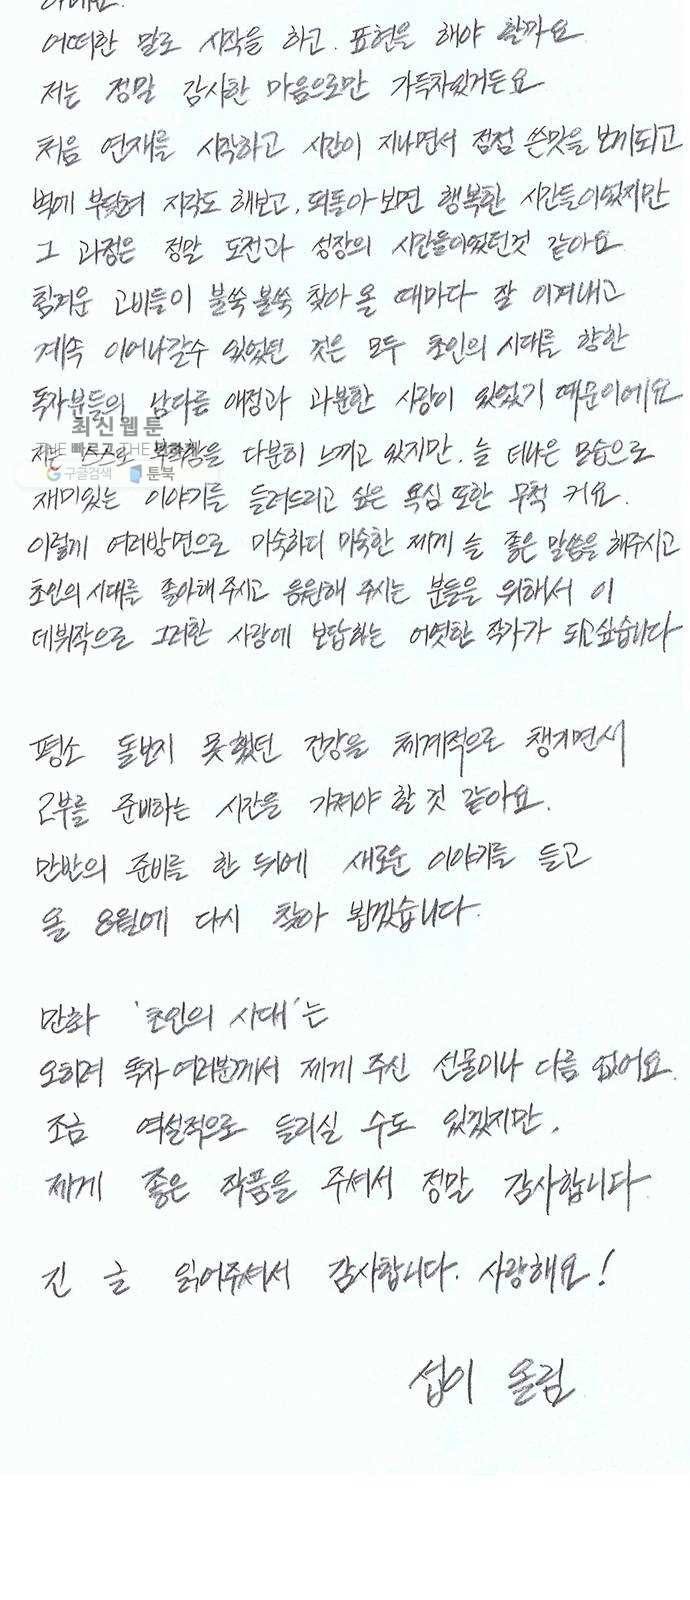 어떠한 말로 시작을 하고. 표현을 해야 할까요
저는 정말 감사한 마음으로만 가득차있거든요
처음 연재를 시작하고 시간이 지나면서 점점 쓴맛을 보게되고
벽에 부딪혀 지각도 해보고, 되돌아보면 행복한 시간들이었지만
그 과정은 정말 도전과 성장의 시간들이었던것 같아요
힘겨운 고비들이 불쑥불쑥 찾아올 때마다 잘 이겨내고
계속 이어나갈수 있었던 것은 모두 초인의 시대를 향한
독자분들의 남다른 애정과 과분한 사랑이 있었기 때문이에요
최신웹툰
저는 스스로 부족함을 다분히 느끼고 있지만. 늘 더나은 모습으로
구글검색 툰북
재미있는 이야기를 들려드리고 싶은 욕심 또한 무척 커요.
이렇게 여러방면으로 미숙하디 미숙한 제게 늘 좋은 말씀을 해주시고
초인의 시대를 좋아해주시고 응원해 주시는 분들을 위해서 이
데뷔작으로 그러한 사랑에 보답하는 어엿한 작가가 되고싶습니다
평소 돌보지 못했던 건강을 체계적으로 챙기면서
2부를 준비하는 시간을 가져야 할 것 같아요.
만반의 준비를 한 뒤에 새로운 이야기를 들고
올 8월에 다시 찾아 뵙겠습니다.
만화 '초인의 시대'는
오히려 독자여러분께서 제게 주신 선물이나 다름 없어요.
조금 역설적으로 들리실 수도 있겠지만,
제게 좋은 작품을 주셔서 정말 감사합니다
긴 글 읽어주셔서 감사합니다. 사랑해요!
섭이 올림